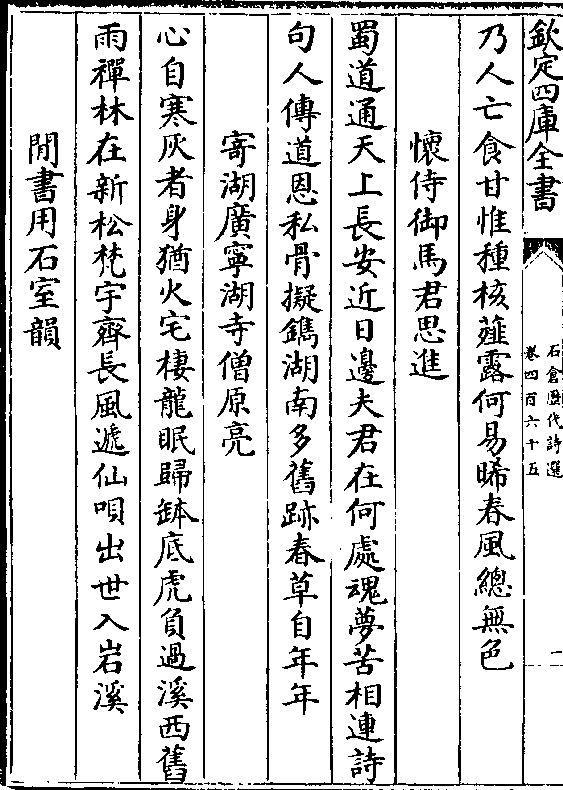 欽定四庫全書
石倉歷代詩選
卷四百六十五
一
乃人亡食甘惟種核薤露何易晞春風總無色
懷侍御馬君思進
蜀道通天上長安近日邊夫君在何處魂夢苦相連詩
句人傳道恩私骨擬鐫湖南多舊跡春草自年年
寄湖廣寧湖寺僧原亮
心自寒灰者身猶火宅棲龍眠歸缽底虎負過溪西舊
雨禪林在新松梵宇齊長風遞仙唄出世入岩溪
閒書用石室韻